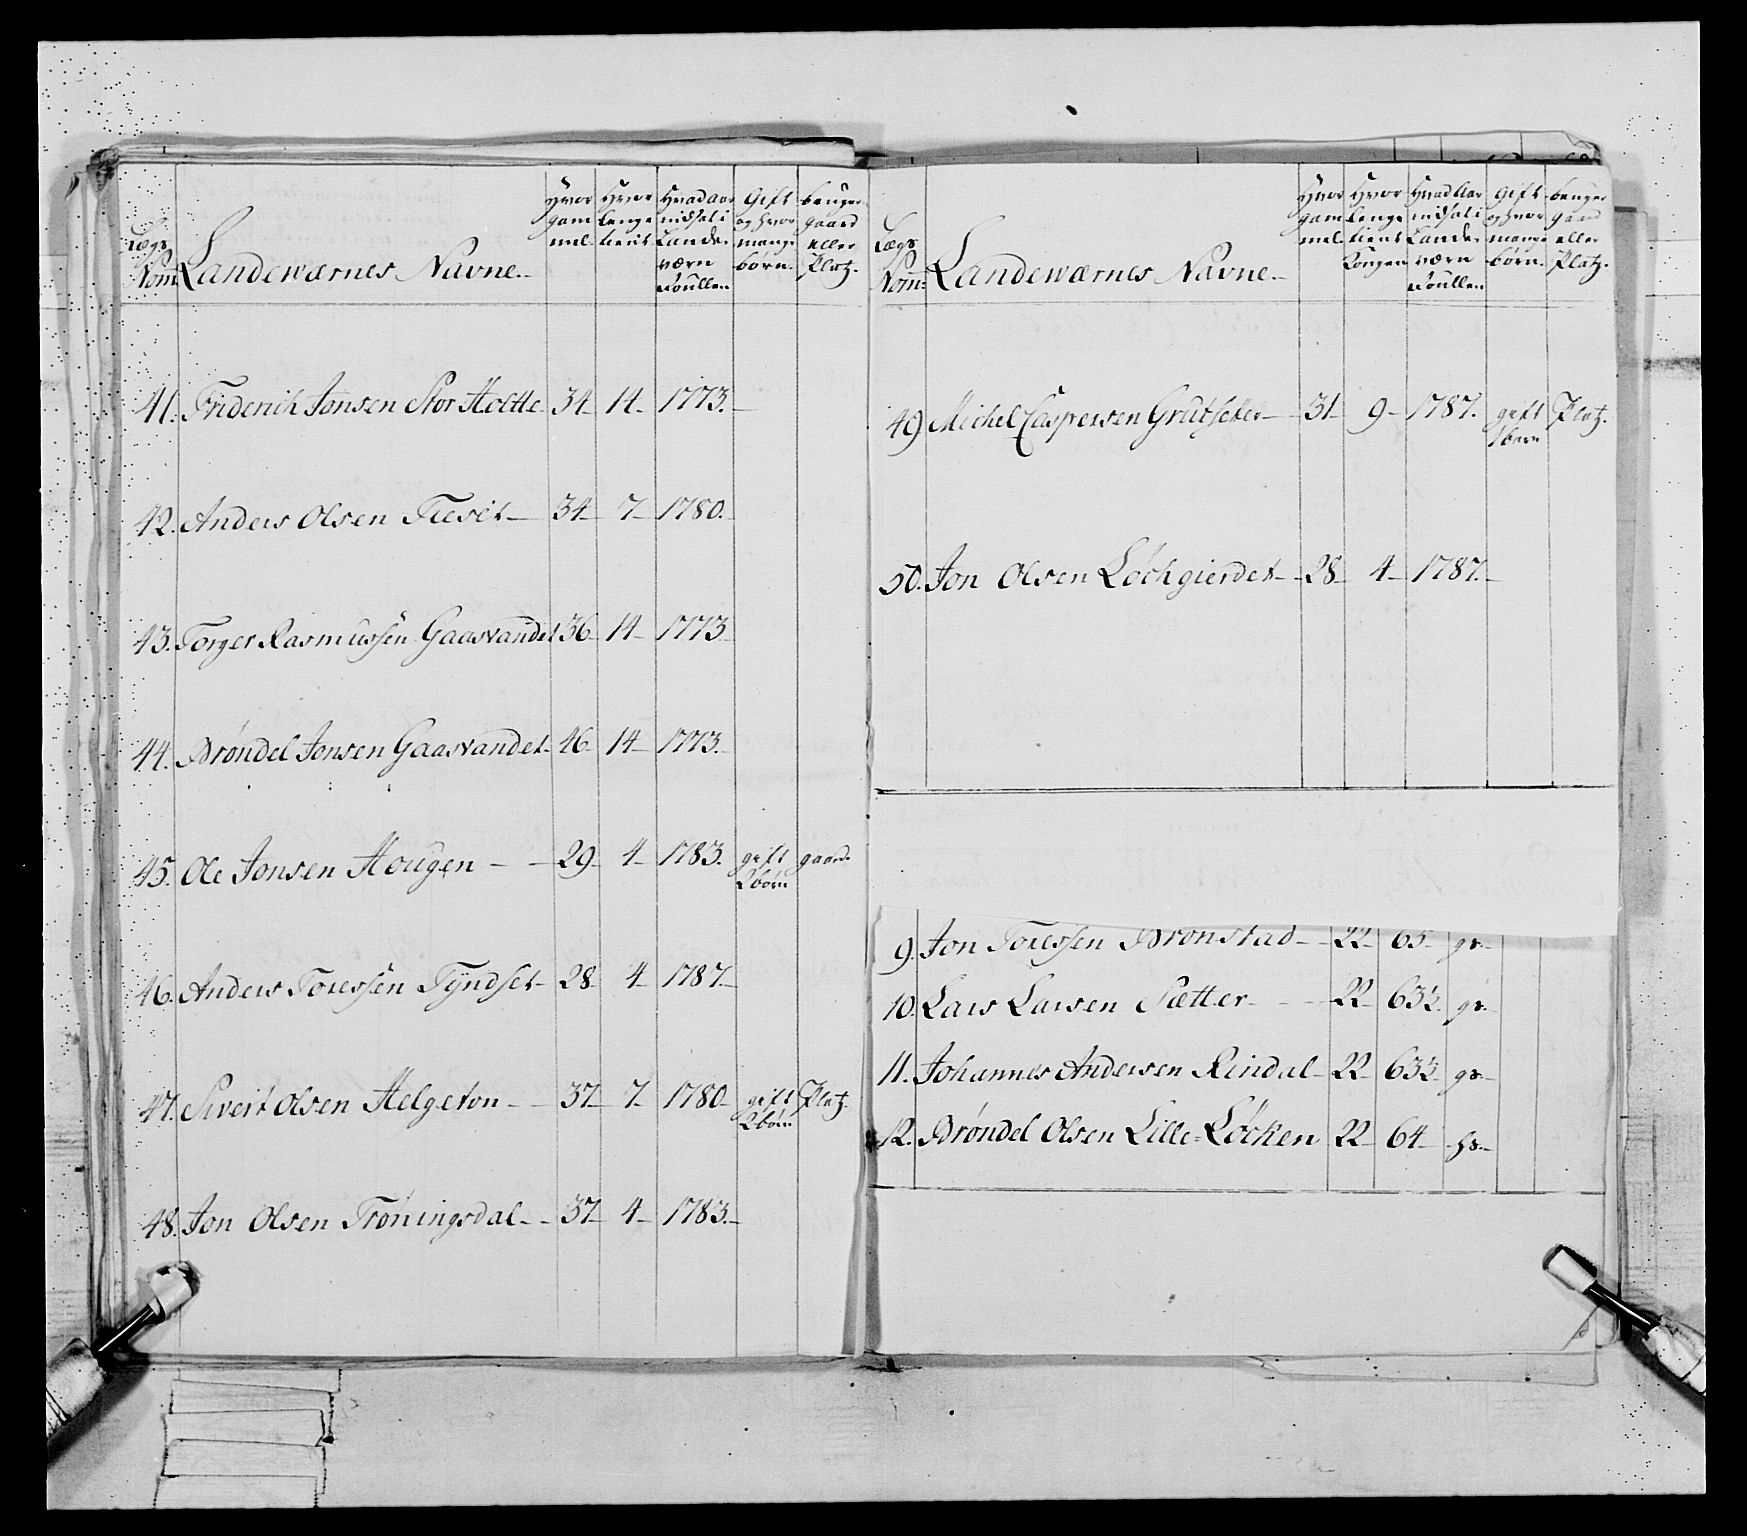 Lægs Nom: Landewærnes Navne. Hvor gammel. Hvor lenge tient Hvad Aar indsat i Landeværn Roullen Gift og hvor mange børn. bruger gaard eller Platz.
41. Friderik Jonsen Stor Holtte 34 14 1773.
42. Anders Olsen 34 7 1780.
43. Torger Rasmussen Gaasvandet 36 14 1773
44. Brøndel Jonsen Gaasvandet 46 14 1773.
45. Ole Jonsen Hougen 29 4 1783. gift 2 børn gaard.
46. Anders Toressen Tyndset 28 4 1787.
47. Sivert Olsen Helgeton 37 7 1780 gift 2 børn Platz.
48. Jon Olsen Trøningsdal 37 4 1783.
Lægs Nom: Landewærnes Navne. Hvor gammel Hvor lenge tient Kongen Hvad Aar indsat i Landeværn Roullen Gift og hvor mange børn. bruger gaard eller Platz.
49. Michel Caspersen Grutseter 31 9 1787. gift 1 barn Platz.
50. Jon Olsen Løchgierdet 28 4 1787.
9. Jon Toressen Bronstad 22 63 gr.
10. Lars Larsen Sætter 22 63½ gr.
11. Johannes Andersen Rindal 22 63½ gr.
12. Brøndel Olsen Lille-Løcken 22 64 hr.